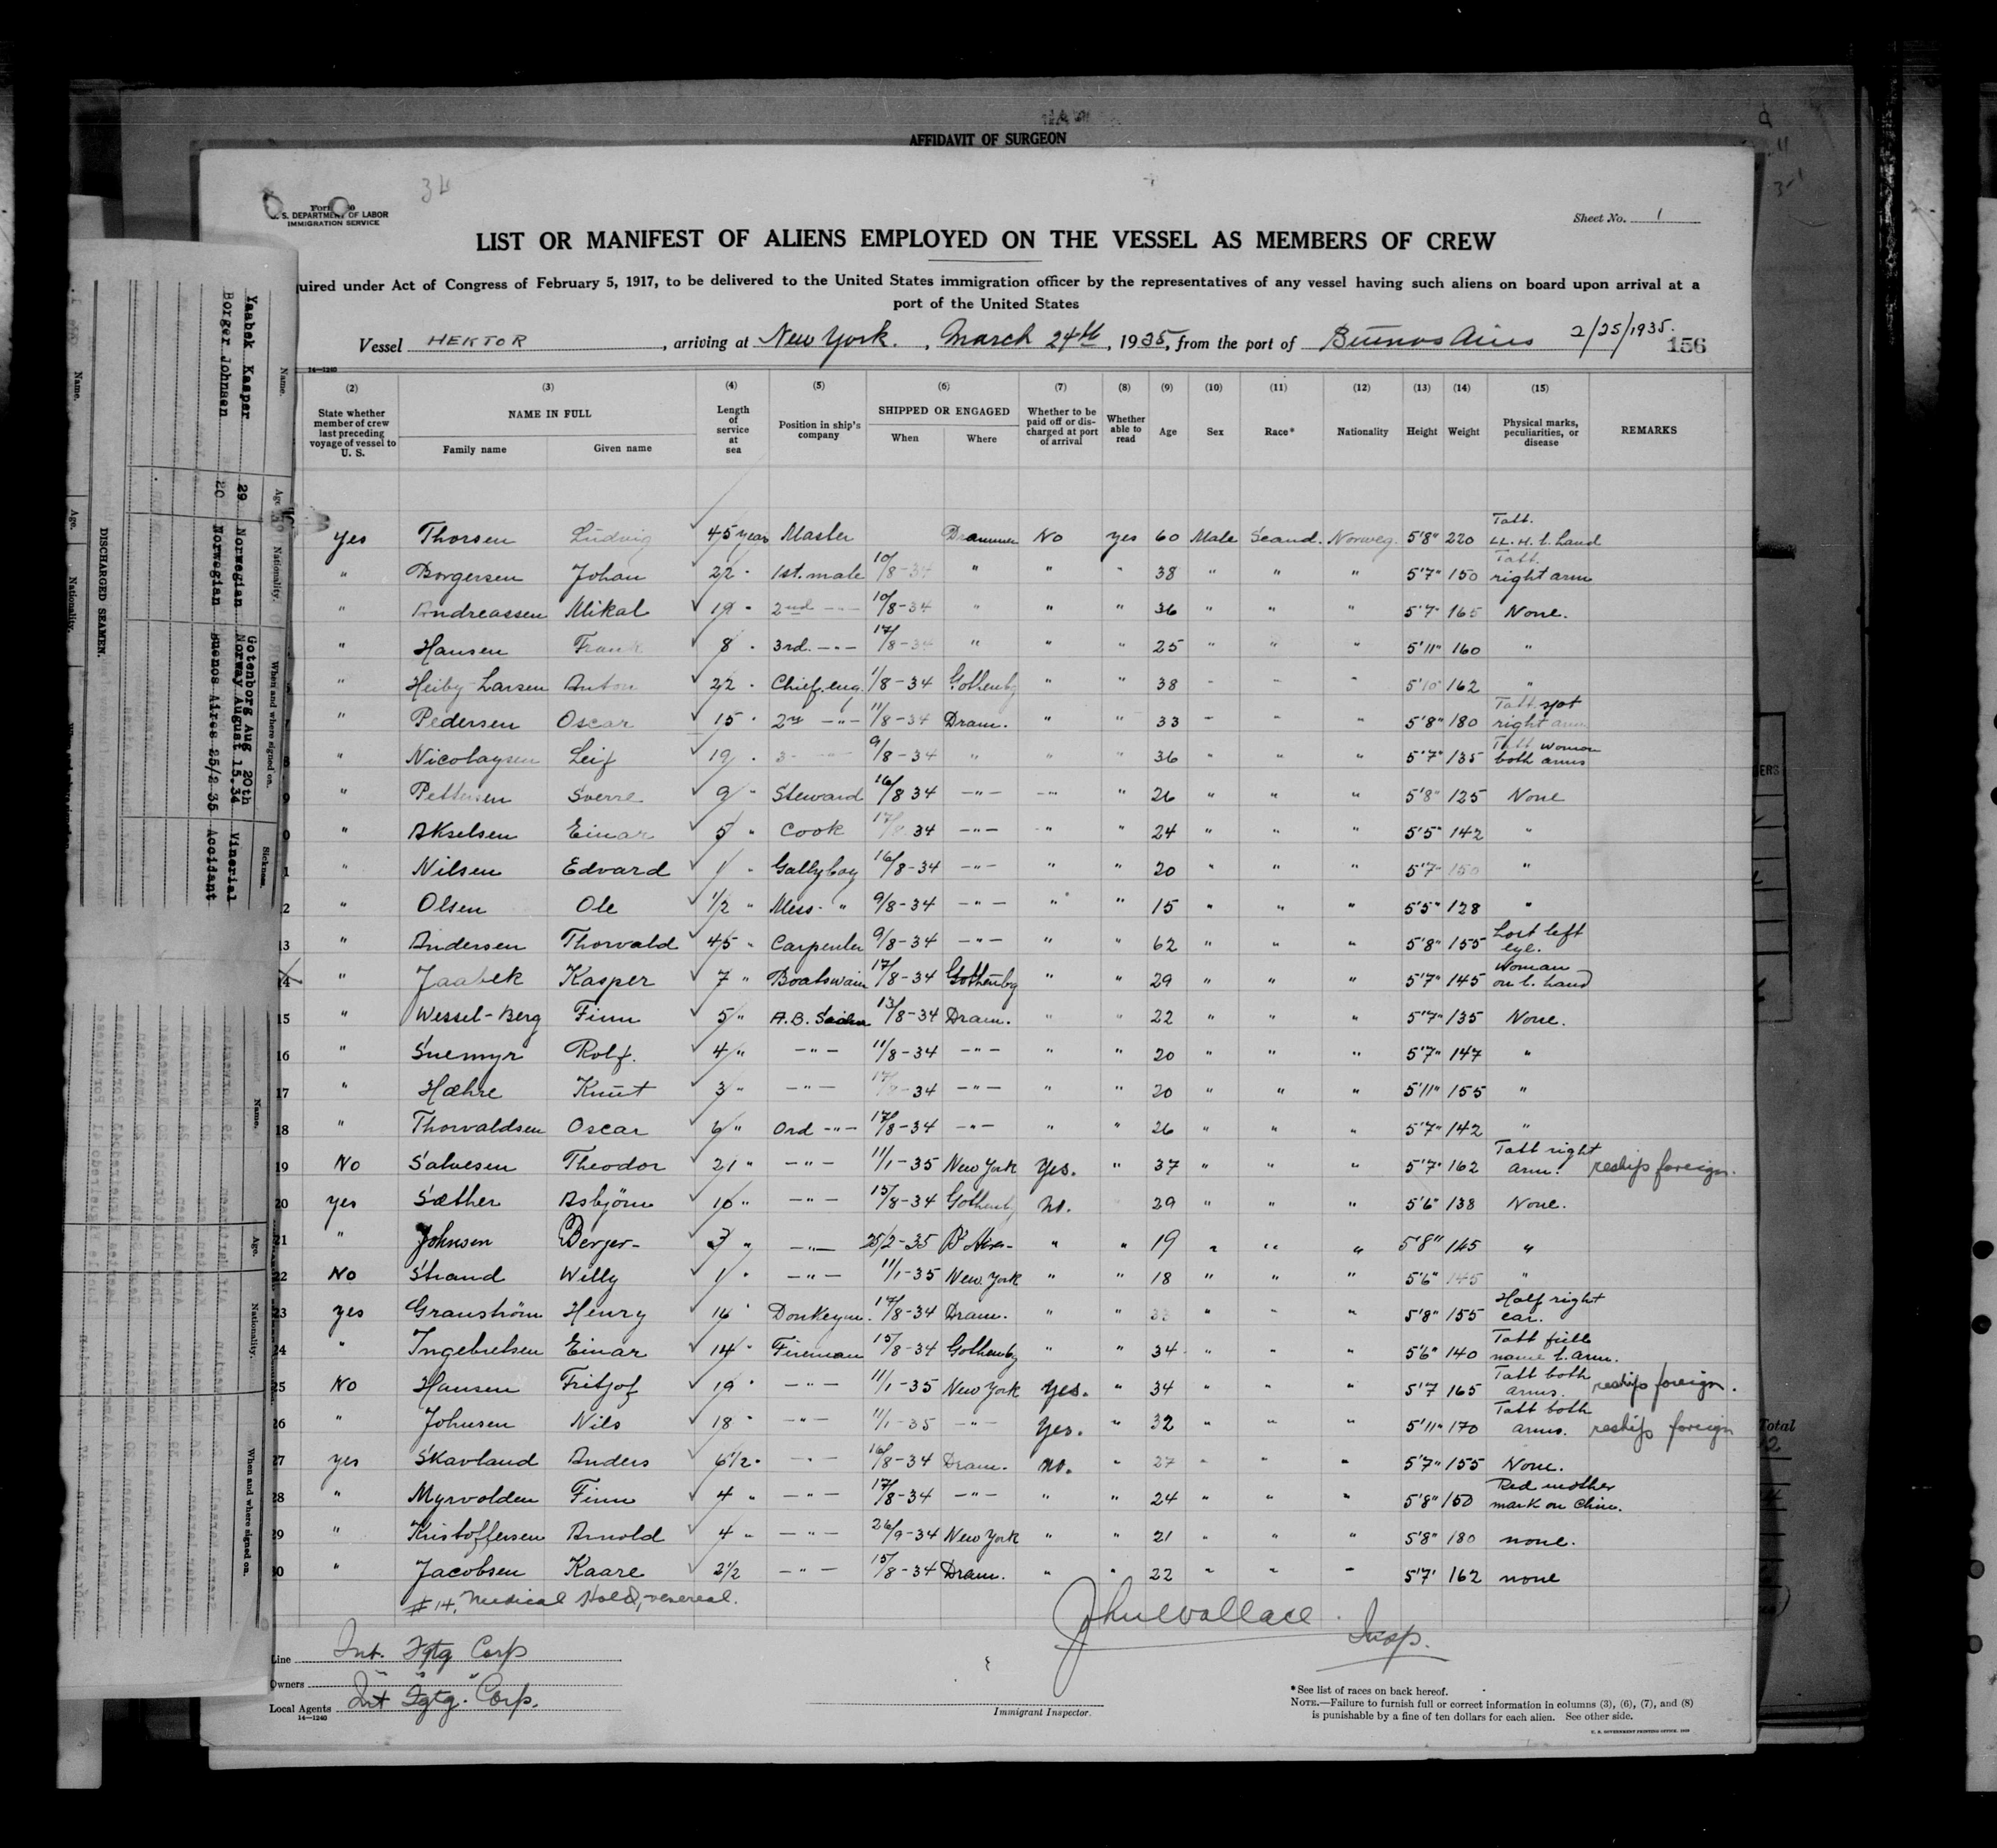 AFFIDAVIT OF SURGEON
U. S. DEPARTMENT OF LABOR
IMMIGRATION SERVICE
Sheet No. 1
LIST OR MANIFEST OF ALIENS EMPLOYED ON THE VESSEL AS MEMBERS OF CREW
uired under Act of Congress of February 5, 1917, to be delivered to the United States immigration officer by the representatives of any vessel having such aliens on board upon arrival at a
port of the United States
Vessel HEKTOR, arriving at New York., March 24th, 1935, from the port of Buenos Aires 2/25/1935.
156
14—1240
(2) (3) (4) (5) (6) (7) (8) (9) (10) (11) (12) (13) (14) (15)
State whether member of crew last preceding voyage of vessel to U. S. NAME IN FULL Family name Given name Length of service at sea Position in ship's company SHIPPED OR ENGAGED When Where Whether to be paid off or discharged at port of arrival Whether able to read Age Sex Race* Nationality Height Weight Physical marks, peculiarities, or disease REMARKS
yes Thorsen Ludvig 45 year Master Drammen No yes 60 Male Scand. Norweg. 5'8" 220 Tatt. LL. H. l. hand
" Borgersen Johan 22 " 1st. mate 10/8-34 " " " 38 " " " 5'7" 150 Tatt. right arm
" Andreassen Mikal 19 " 2nd -"- 10/8-34 " " " 36 " " " 5'7" 165 None.
" Hansen Frank 8 " 3rd. -"- 17/8-34 " " " 25 " " " 5'11" 160 "
" Heiby-Larsen Anton 22 " Chief. eng. 1/8-34 Gothenbg " " 38 " " " 5'10" 162 "
7 " Pedersen Oscar 15 " 2nd -"- 11/8-34 Dram. " " 33 " " " 5'8" 180 Tatt. spot right arm
8 " Nicolaysen Leif 19 " 3 -"- 9/8-34 " " " 36 " " " 5'7" 135 Tatt woman both arms
9 " Pettersen Sverre 9 " Steward 16/8 34 -"- -"- " 26 " " " 5'8" 125 None
0 " Akselsen Einar 5 " Cook 17/8 34 -"- " " 24 " " " 5'5" 142 "
1 " Nilsen Edvard 1 " Gallyboy 16/8-34 -"- " " 20 " " " 5'7" 150 "
2 " Olsen Ole 1/2 " Mess- " 9/8-34 -"- " " 15 " " " 5'5" 128 "
3 " Andersen Thorvald 45 " Carpenter 9/8-34 -"- " " 62 " " " 5'8" 155 Lost left eye.
14 " Jaabek Kasper 7 " Boatswain 17/8-34 Gothenbg " " 29 " " " 5'7" 145 Woman on l. hand
15 " Wessel-Berg Finn 5 " A.B. Sailor 13/8-34 Dram. " " 22 " " " 5'7" 135 None.
16 " Snemyr Rolf. 4 " -"- 11/8-34 -"- " " 20 " " " 5'7" 147 "
17 " Hæhre Knut 3 " -"- 17/8-34 -"- " " 20 " " " 5'11" 155 "
18 " Thorvaldsen Oscar 6 " Ord -"- 17/8-34 -"- " " 26 " " " 5'7" 142 "
19 No Salvesen Theodor 21 " -"- 11/1-35 New York Yes. " 37 " " " 5'7" 162 Tatt right arm. reship foreign.
20 yes Sæther Asbjörn 10 " -"- 15/8-34 Gothenbg No. 29 " " " 5'6" 138 None.
21 " Johnsen Berger- 3 " -"- 25/2-35 B'Aires- " " 19 " " " 5'8" 145 "
22 No Strand Willy 1 " -"- 11/1-35 New York " " 18 " " " 5'6" 145 "
23 yes Granström Henry 16 " Donkeym. 17/8-34 Dram. " " 33 " " " 5'8" 155 Half right ear.
24 " Ingebretsen Einar 14 " Fireman 15/8-34 Gothenbg " " 34 " " " 5'6" 140 Tatt full name l. arm.
25 No Hansen Fritjof 19 " -"- 11/1-35 New York Yes. " 34 " " " 5'7 165 Tatt both arms. reship foreign.
26 " Johnsen Nils 18 " -"- 11/1-35 -"- Yes. " 32 " " " 5'11" 170 Tatt both arms. reship foreign
27 yes Skavland Anders 6 1/2 " -"- 16/8-34 Dram. No. " 27 " " " 5'7" 155 None.
28 " Myrvolden Finn 4 " -"- 17/8-34 -"- " " 24 " " " 5'8" 150 Red mother mark on chin.
29 " Kristoffersen Arnold 4 " -"- 26/9-34 New York " " 21 " " " 5'8" 180 none.
30 " Jacobsen Kaare 2 1/2 -"- 15/8-34 Dram. " " 22 " " " 5'7' 162 none
#14, Medical Hold, venereal.
John Wallace. Insp.
Line Int. Fgtg Corp
Owners " " "
Local Agents Int Fgtg. Corp.
14—1240
Immigrant Inspector.
*See list of races on back hereof.
NOTE.—Failure to furnish full or correct information in columns (3), (6), (7), and (8)
is punishable by a fine of ten dollars for each alien. See other side.
U. S. GOVERNMENT PRINTING OFFICE
Name. Age. Nationality. When and where signed on. Sickness.
Yaabek Kasper 29 Norwegian Gotenborg Aug 20th Vinerial
Borger Johnsen 20 Norwegian Norway August 15.34
Buenos Aires 25/2 35 Accidant
DISCHARGED SEAMEN.
Name. Age. Nationality.
Name. Age. Nationality. When and where signed on.
Total